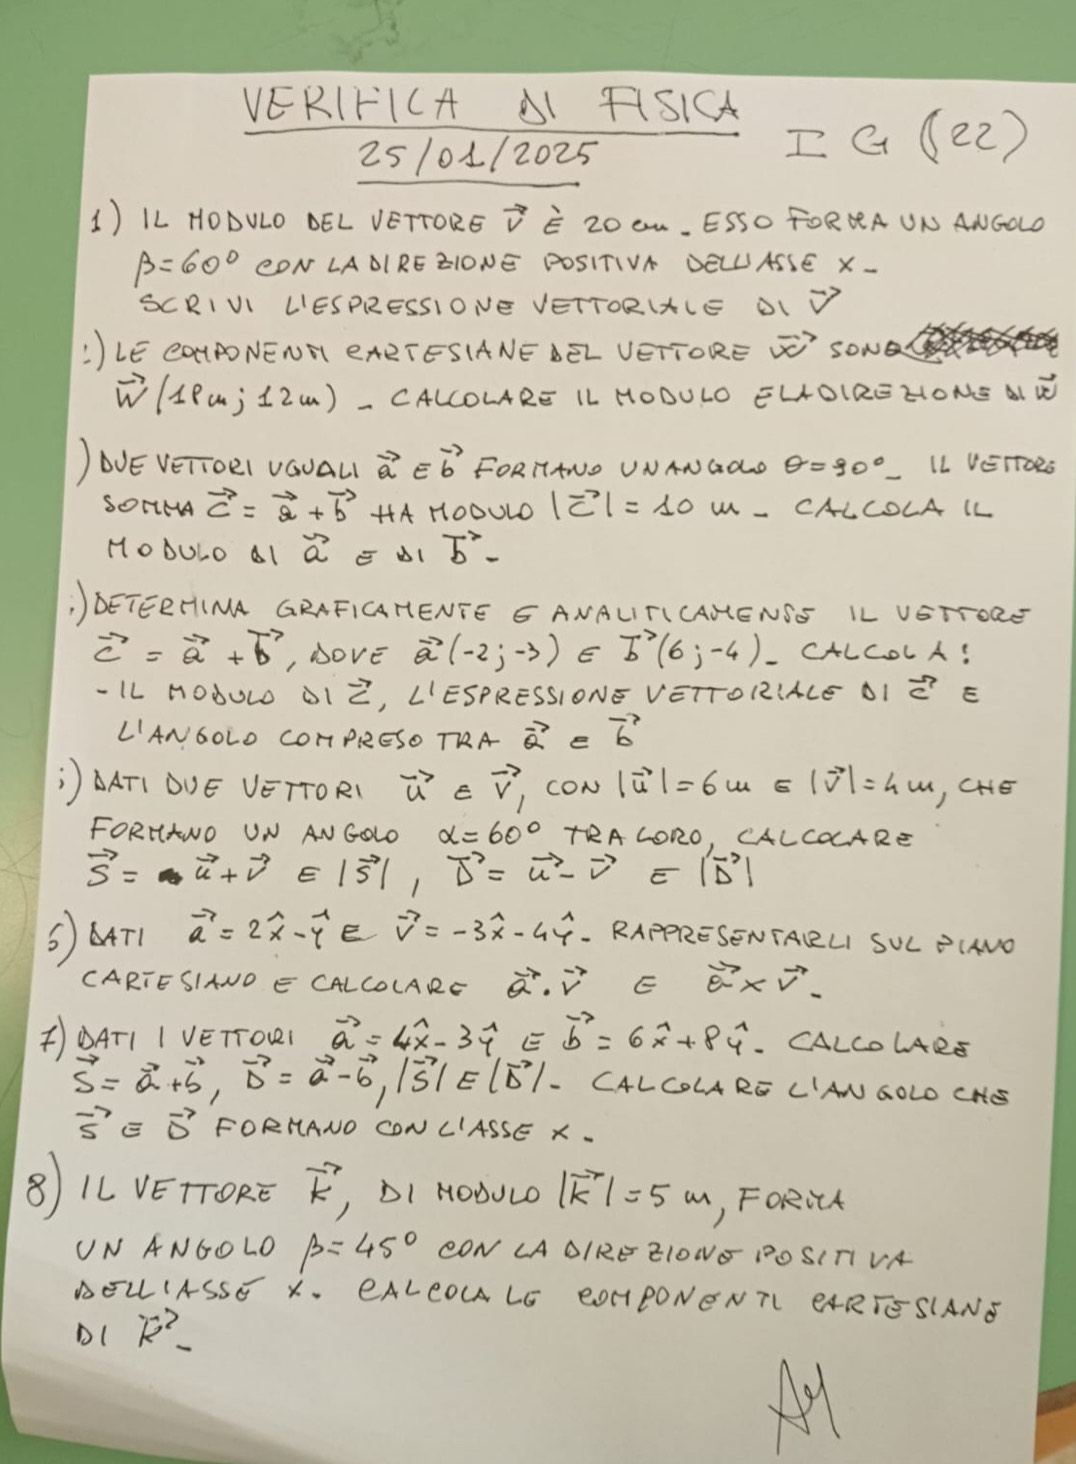 VERIFICA DI FISICA
25/01/2025
I G (22)
1) IL MODULO DEL VETTORE v⃗ È 20 cm. ESSO FORMA UN ANGOLO
β=60° CON LA DIREZIONE POSITIVA DELL'ASSE X-
SCRIVI L'ESPRESSIONE VETTORIALE DI v⃗
:) LE COMPONENTI CARTESIANE DEL VETTORE w⃗ SONO
w⃗ (18m; 12m) - CALCOLARE IL MODULO E LA DIREZIONE DI w⃗
) DUE VETTORI UGUALI a⃗ E b⃗ FORMANO UN ANGOLO θ=90°- IL VETTORE
SOMMA c⃗ = a⃗ + b⃗ HA MODULO |c⃗| = 10 m - CALCOLA IL
MODULO DI a⃗ E DI b⃗-
;) DETERMINA GRAFICAMENTE E ANALITICAMENTE IL VETTORE
c⃗ = a⃗ + b⃗, DOVE a⃗(-2;-3) E b⃗(6;-4)- CALCOLA:
- IL MODULO DI c⃗, L'ESPRESSIONE VETTORIALE DI c⃗ E
L'ANGOLO COMPRESO TRA a⃗ E b⃗
;) DATI DUE VETTORI u⃗ E v⃗, CON |u⃗|=6m E |v⃗|=4m, CHE
FORMANO UN ANGOLO α=60° TRA LORO, CALCOLARE
S⃗ = u⃗+v⃗ E |S⃗|, D⃗ = u⃗-v⃗ E |D⃗|
6) DATI a⃗ = 2x̂-ŷ E v⃗ = -3x̂-4ŷ- RAPPRESENTARLI SUL PIANO
CARTESIANO E CALCOLARE a⃗·v⃗ E a⃗×v⃗-
7) DATI I VETTORI a⃗ = 4x̂-3ŷ E b⃗ = 6x̂+8ŷ- CALCOLARE
S⃗ = a⃗+b⃗, D⃗ = a⃗-b⃗, |S⃗| E |D⃗|- CALCOLARE L'ANGOLO CHE
S⃗ E D⃗ FORMANO CON L'ASSE X.
8) IL VETTORE k⃗, DI MODULO |k⃗|=5 m, FORMA
UN ANGOLO β=45° CON LA DIREZIONE POSITIVA
DELL'ASSE X. CALCOLA LE COMPONENTI CARTESIANE
DI k⃗-